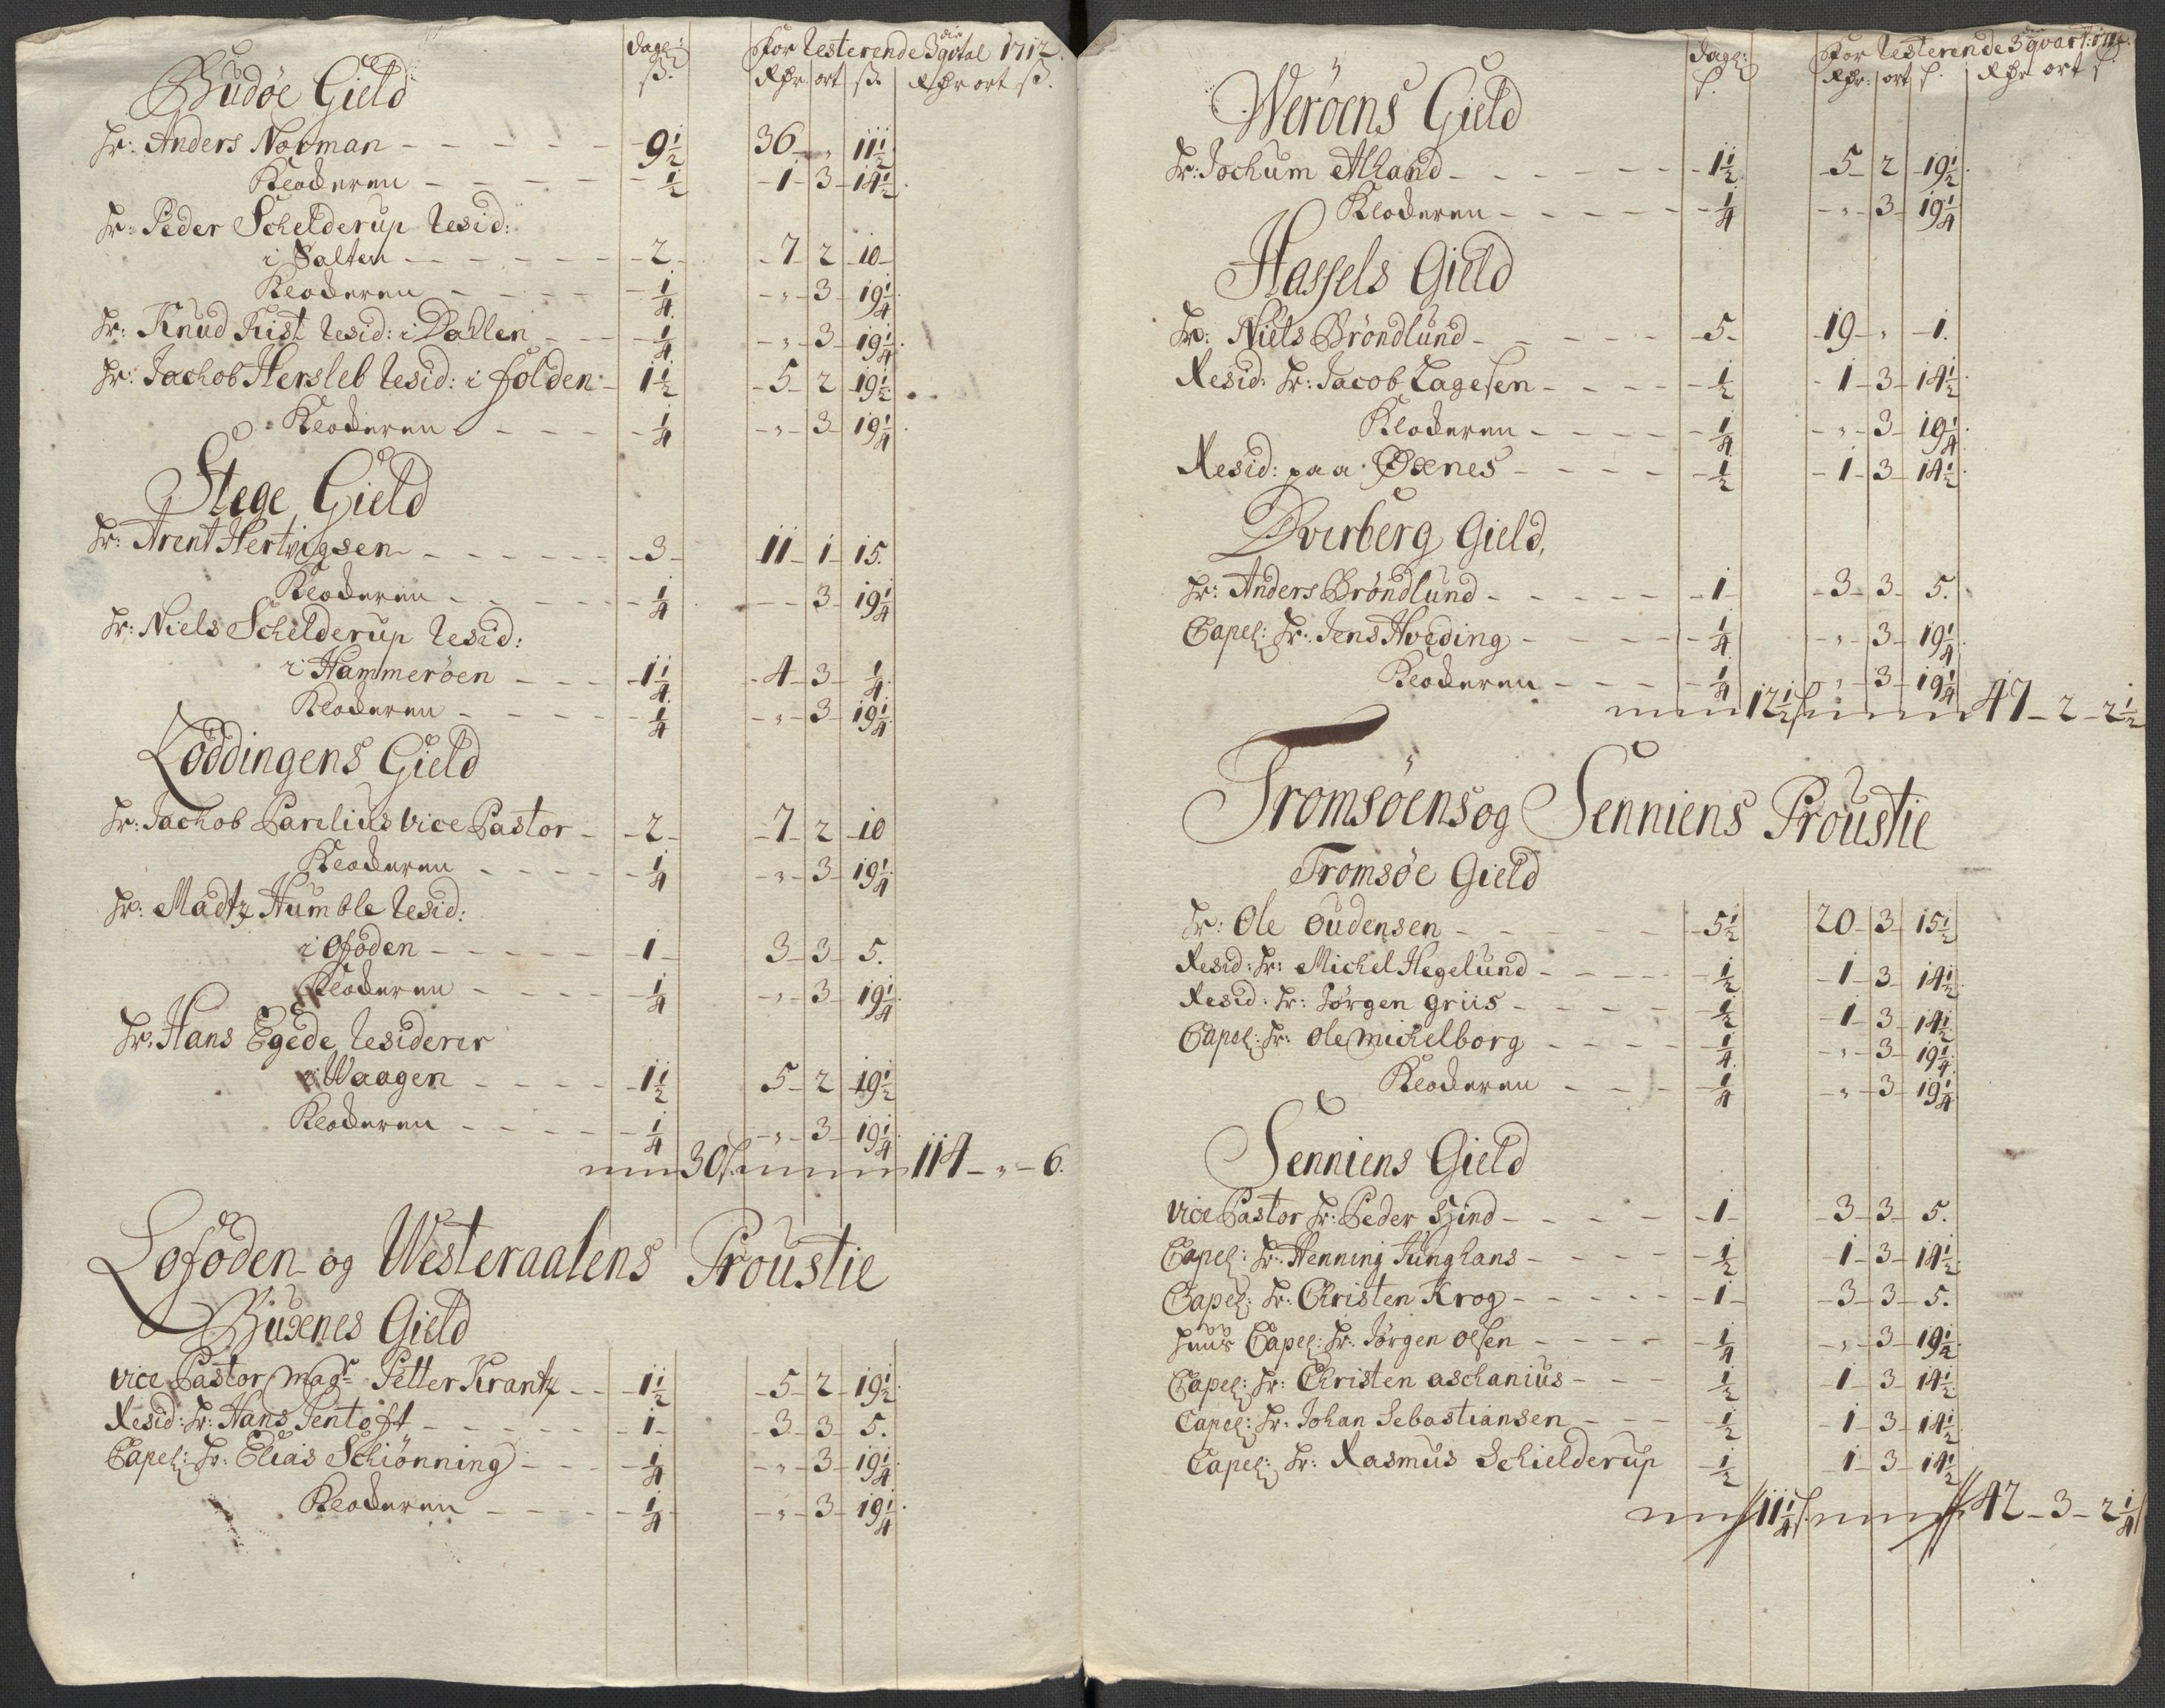 Dagl: For resterende 3die qvtal 1712.
ß. Rdr ort ß. Rdr ort ß.
Budöe Gield
Hr: Anders Norman - 9½ 36 „ 11½
Klocheren - ½ 1 3 14½
Hr: Peder Schelderup resid:
i Salten - 2 7 2 10
Klocheren - ¼ „ 3 19¼
Hr: Knud Rist resid: i Dallen - ¼ „ 3 19¼
Hr: Jachob Hersleb resid: i folden - 1½ 5 2 19½
Klocheren - ¼ „ 3 19¼
Stege Gield
Hr: Arent Hertvigsen - 3 11 1 15.
Klocheren - ¼ - 3 19¼
Hr: Niels Schelderup resid:
i Hammeröen - 1¼ 4 3 ¼
Klocheren - ¼ „ 3 19¼
Löddingens Gield
Hr: Jachob Parelius vice Pastor - 2 7 2 10
Klocheren - ¼ „ 3 19¼
Hr: Madtz Humble resid:
i Ofoden - 1 3 3 5.
Klocheren - ¼ „ 3 19¼
Hr: Hans Egede residerer
i Waagen - 1½ 5 2 19½
Klocheren - ¼ „ 3 19¼
30 ß. 114 - „ - 6.
Lofoden og Westeraalens Proustie
Buxnes Gield
vice Pastor Magr Petter Krantz - 1½ 5 2 19½
Resid: Hr: Hans Jentoft - 1 3 3 5.
Capel: Hr: Elias Schiönning - ¼ „ 3 19¼
Klocheren - ¼ „ 3 19¼
Dagl: For resterende 3die qvart: 1712.
ß. Rdr: ort ß. Rdr ort ß
Weröens Gield
Hr: Jochum Alhand - 1½ 5 2 19½
Klocheren - ¼ „ 3 19¼
Hassels Gield
Hr: Niels Bröndlund - 5 19 „ 1.
Resid: Hr: Jacob Lagesen - ½ 1 3 14½
Klocheren - ¼ „ 3 19¼
Resid: paa Öxnes - ½ 1 3 14½
Dverberg Gield,
Hr: Anders Bröndlund - 1 3 3 5.
Capel: Hr: Jens Hveding - ¼ „ 3 19¼
Klocheren - ¼ „ 3 19¼
12½ ß 47 - 2 - 2½
Tromsöens og Senniens Proustie
Tromsöe Gield
Hr: Ole Oudensen - 5½ 20 3 15½
Resid: Hr: Michel Hegelund - ½ 1 3 14½
Resid: Hr: Jörgen Griis - ½ 1 3 14½
Capel: Hr: Ole Michelborg - ¼ „ 3 19¼
Klocheren - ¼ „ 3 19¼
Senniens Gield
vice Pastor Hr: Peder Hind - 1 3 3 5.
Capel: Hr: Henning Junghans - ½ 1 3 14½
Capel: Hr: Christen Krog - 1 3 3 5.
Huus Capel: Hr: Jörgen Olsen - ¼ „ 3 19½
Capel: Hr: Christen Aschanius - ½ 1 3 14½
Capel: Hr: Johan Sebastiansen - ½ 1 3 14½
Capel: Hr: Rasmus Schielderup ½ 1 3 14½
11¼ ß 42 - 3 - 2¼